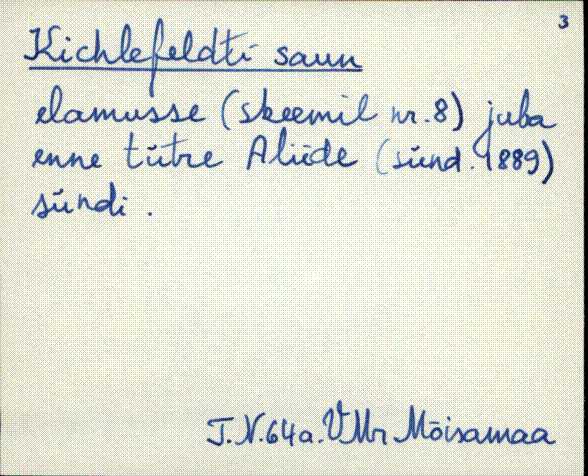 3
Kichlefeldti saun
elamusse (skeemil nr. 8) juba
enne tütre Aliide (sünd. 1889)
sündi.
J.N. 64 a. VMr Mõisamaa